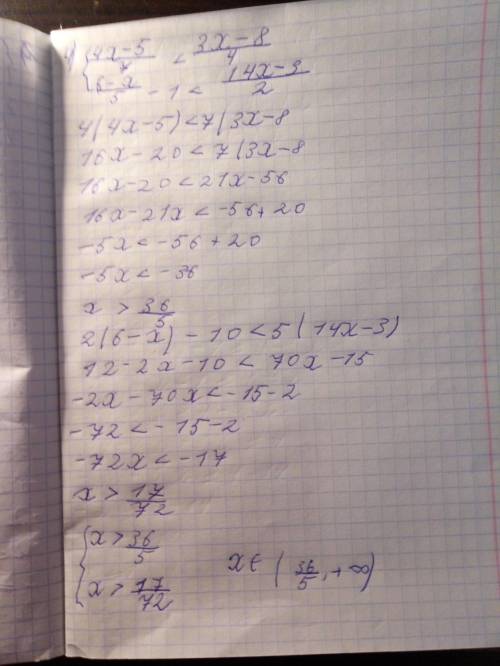 4x-5/7 < 3x-8/4
6-x/5 - 1 < 14x-3/2
4(4x-5)<7(3x-8
16x-20<7(3x-8
16x-20<21x-56
16x-21x<-56+20
-5x<-56+20
-5x<-36
x > 36/5
2(6-x)-10<5(14x-3)
12-2x-10<70x-15
-2x-70x<-15-2
-72<-15-2
-72x<-17
x > 17/72
{x>36/5
{x>17/72
x∈(36/5,+∞)